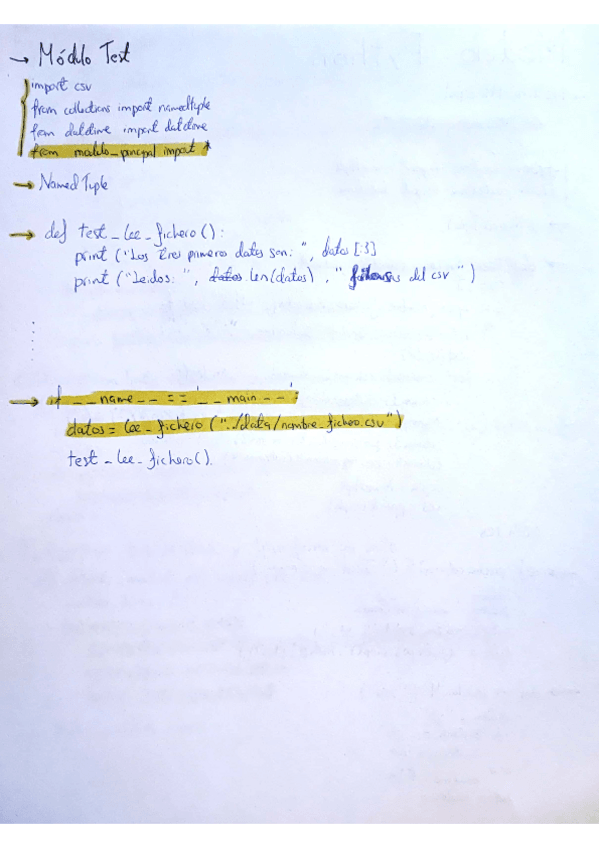 → Módulo Test
import csv
from collections import namedtuple
from datetime import datetime
from modulo_principal import *
→ NamedTuple
→ def test_lee_fichero():
print ("Los tres primeros datos son: ", datos [:3]
print ("Leidos: ", datos len(datos), " filas del csv ")
→ if __name__ == '__main__':
datos = lee_fichero ("../data/nombre_fichero.csv")
test_lee_fichero().